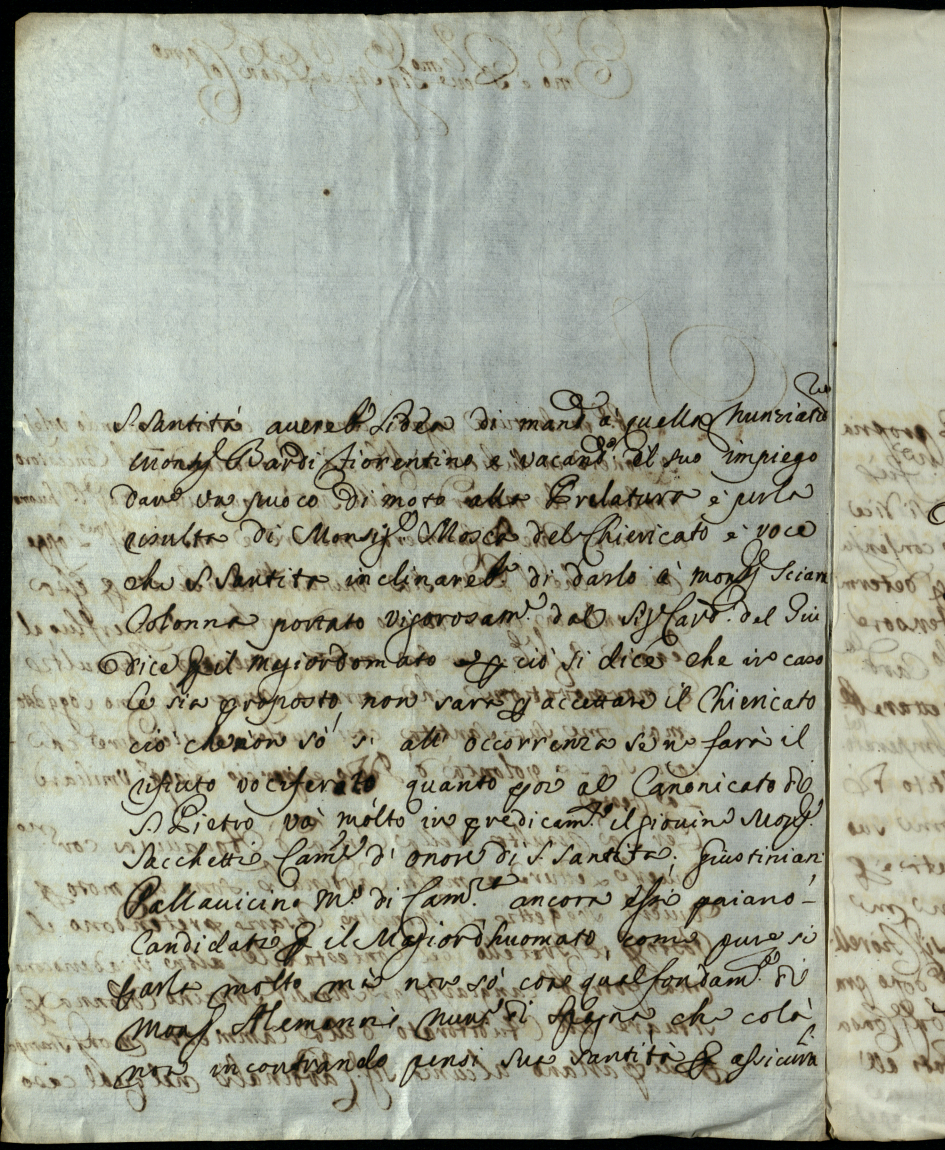 S. Santità auereb.e l'idea di mand.e à quella Nunziat.ra
Mons.r Bardi fiorentino e vacand.o il suo impiego
dar.e un puoco di moto alla Prelatura e per la
risulta di Monsig.r Mosca del Chiericato è voce
che S. Santita inclinareb.e di darlo à mons.r Sciarra
Colonna portato vigorosam.e dal Sig.r Card. del Giu
dice p il Magiordomato e p ciò si dice che in caso
le sia proposto, non sara p accettare il Chiericato
ciò che non só s' all' occorrenza se ne farà il
rifiuto vociferato quanto poi al Canonicato di
S. Pietro và mólto in predicam.to il giovine Mons.r
Sacchetti Cam.re d' onore di S. Santità. Giustiniani
Pallauicino M.o di Cam.ra ancora essi paiano
Candidati p il Magiordhuomato come pure si
parla molto mà non só con qual fondam.to di
Mons.r Alemanni Nun.o di Spagna che colà
non incontrando pensi sua santità p assicura